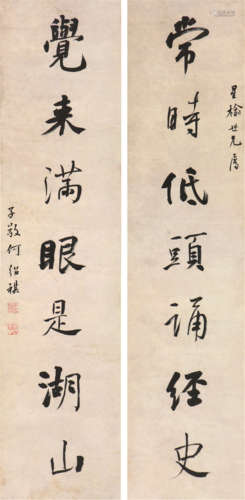 常時低頭誦經史
星榆世兄屬
覺来滿眼是湖山
子敬何紹祺